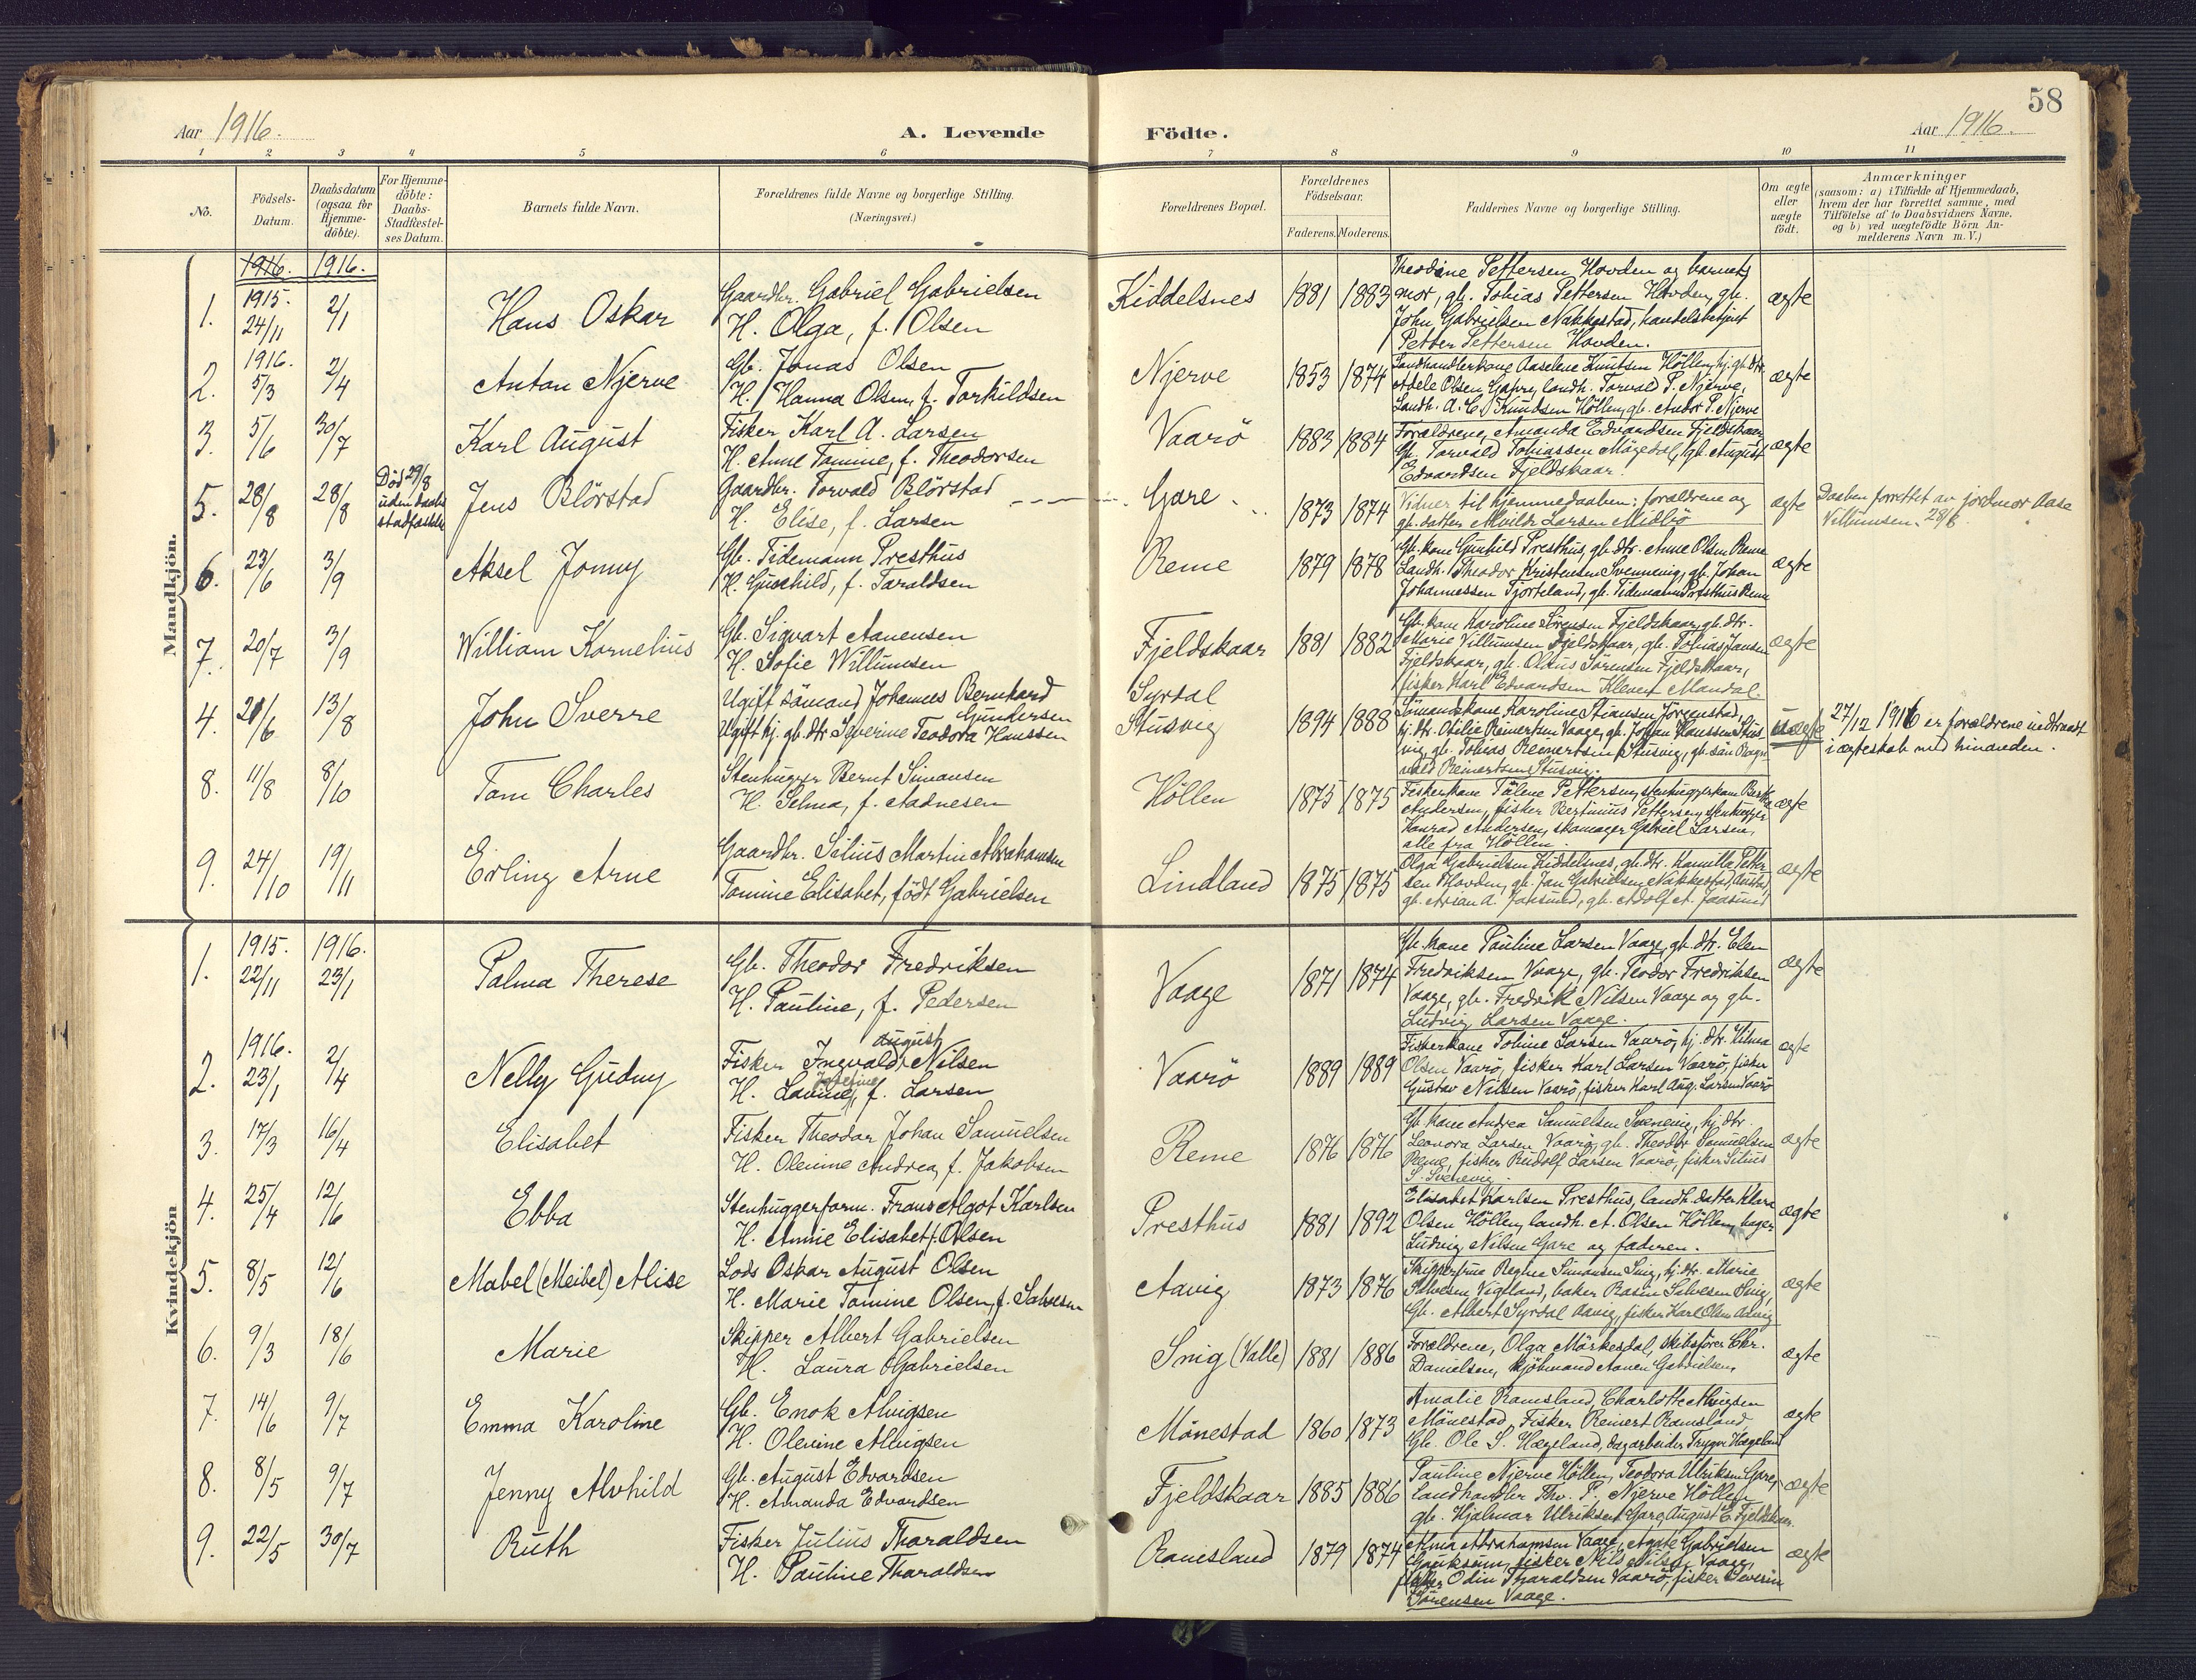 58
Aar 1916.
A. Levende Födte.
Aar 1916.
1 2 3 4 5 6 7 8 9 10 11
No.
Födsels-
Datum.
Daabsdatum
(ogsaa for
Hjemme-
döbte).
For Hjemme-
döbte:
Daabs-
Stadfæstel-
ses Datum.
Barnets fulde Navn.
Forældrenes fulde Navne og borgerlige Stilling.
(Næringsvei.)
Forældrenes Bopæl.
Forældrenes
Födselsaar.
Faderens. Moderens.
Faddernes Navne og borgerlige Stilling.
Om ægte
eller
uægte
födt.
Anmærkninger
(saasom: a) i Tilfælde af Hjemmedaab,
hvem der har forrettet samme, med
Tilföielse af to Daabsvidners Navne.
og b) ved uægtefödte Börn An-
melderens Navn m. V.)
Mandkjön.
1916. 1916.
1. 1915. 24/11 2/1 Hans Oskar
Gaardbr. Gabriel Gabrielsen
H. Olga, f. Olsen
Kiddelsnes 1881 1883
Theodine Pettersen Hovden og barnets
mor, gb. Tobias Pettersen Hovden, gb.
John Gabrielsen Nakkestad, handelsbetjent
Petter Pettersen Hovden.
ægte
2. 1916. 5/3 2/4 Anton Njerve
Gb. Jonas Olsen
H. Hanna Olsen, f. Torkildsen
Njerve 1853 1874
Landhandlerkone Aaselene Knutsen Höllen, hj. gb. dtr.
Adele Olsen Gahre, landh. Torvald P. Njerve,
Landh. A. C. Knudsen Höllen, gb. Andor P. Njerve
ægte
3. 5/6 30/7 Karl August
Fisker Karl A. Larsen
H. Anne Tomine, f. Theodorsen
Vaarö 1883 1884
Forældrene, Amanda Edvardsen Fjeldskaar,
Gb. Torvald Tobiassen Mögedal, gb. August
Edvardsen Fjeldskaar.
ægte
5. 28/8 28/8
Död 29/8
uden daabs
stadfæstelse
Jens Blörstad
Gaardbr. Torvald Blörstad
H. Elise, f. Larsen
Gare 1873 1874
Vidner til hjemmedaaben: forældrene og
gb. datter Alvilde Larsen Midbö
ægte
Daaben forrettet av jordmor Aase
Villumsen 28/8.
6. 23/6 3/9 Aksel Jonny
Gb. Tidemann Presthus
H. Gunhild, f. Taraldsen
Reme 1879 1878
Gb. kone Gunhild Presthus, gb. dtr. Anne Olsen Reme
Landh. Theodor Kristensen Svennevig, gb. Johan
Johannessen Tjorteland, gb. Tidemann Presthus Reme
ægte
7. 20/7 3/9 William Kornelius
Gb. Sigvart Aanensen
H. Sofie Willumsen
Fjeldskaar 1881 1882
Gb. kone Karoline Sörensen Fjeldskaar, gb. dtr.
Marie Villumsen Fjeldskaar, gb. Tobias Jansen
Fjeldskaar, gb. Olaus Sörensen Fjeldskaar,
fisker Karl Edvardsen Kleven Mandal.
ægte
4. 21/6 13/8 John Sverre
Ugift sömand Johannes Bernhard
Gundersen
Ugift hj. gb. dtr. Severine Teodora Hanssen
Syrdal
Stusvig 1894 1888
Sömandskone Karoline Stiansen Jörgenstad,
hj. dtr. Otilie Reinertsen Vaage, gb. Johan Hanssen Stus-
vig, gb. Tobias Reinertsen Stusvig, gb. sön Ragn-
vald Reinertsen Stusvig.
uægte
27/12 1916 er forældrene indtraadt
i ægteskab med hinanden.
8. 11/8 8/10 Tom Charles
Stenhugger Bernt Simonsen
H. Selma, f. Aadnesen
Höllen 1875 1875
Fiskerkone Tälene Pettersen, stenhuggerkone Berthe
Andersen, fisker Bertinius Pettersen, stenhugger
Konrad Andersen, skomager Gabriel Larsen,
alle fra Höllen.
ægte
9. 24/10 19/11 Erling Arne
Gaardbr. Silius Martin Abrahamsen
Tomine Elisabet, födt Gabrielsen
Lindland 1875 1875
Olga Gabrielsen Kiddelsnes, gb. dtr. Kamilla Petter-
sen Hovden, gb. Jan Gabrielsen Nakkestad,
gb. Adolf A. Jaasund
ægte
Kvindekjön
1. 1915. 22/11 1916. 23/1 Palma Therese
Gb. Theodor Fredriksen
H. Pauline, f. Pedersen
Vaage 1871 1874
Gb. kone Pauline Larsen Vaage, gb. dtr. Elen
Fredriksen Vaage, gb. Teodor Fredriksen
Vaage, gb. Fredrik Nilsen Vaage og gb.
Ludvig Larsen Vaage.
ægte
2. 1916. 23/1 2/4 Nelly Gudny
august
Fisker Ingvald Nilsen
H. Lovine, f. Larsen
Vaarö 1889 1889
Fiskerkone Tobine Larsen Vaarö, hj. dtr. Hilma
Olsen Vaarö, fisker Karl Larsen Vaarö, fisker
Gustav Nilsen Vaarö, fisker Karl Aug. Larsen Vaarö
ægte
3. 17/3 16/4 Elisabet
Fisker Theodor Johan Samuelsen
H. Olenine Andrea, f. Jakobsen
Reme 1876 1876
Gb. kone Andrea Samuelsen Svenevig, hj. dtr.
Leonora Larsen Vaarö, gb. Theodor Samuelsen
Reme, fisker Rudolf Larsen Vaarö, fisker Silius
S. Svenevig.
ægte
4. 25/4 12/6 Ebba
Stenhuggerform. Frans Algot Karlsen
H. Annie Elisabet f. Olsen
Presthus 1881 1892
Elisabet Karlsen Presthus, landh. datter Klara
Olsen Höllen, landh. A. Olsen Höllen, bager
Ludvig Nilsen Gare og faderen.
ægte
5. 8/5 12/6 Mabel (Meibel) Alise
Lods Oskar August Olsen
H. Marie Tomine Olsen, f. Salvesen
Aavig 1873 1876
Skipperfrue Regine Simonsen Snig, hj. dtr. Marie
Salvesen Vigeland, baker Rasmus Salvesen Snig,
Gb. Albert Syrdal Aavig, fisker Karl Olsen Aavig
ægte
6. 9/3 18/6 Marie
Skipper Albert Gabrielsen
H. Laura Gabrielsen
Snig (Valle) 1881 1886
Forældrene, Olga Mörkesdal, skibsförer Chr.
Danielsen, kjöbmand Aanen Gabrielsen,
ægte
7. 14/6 9/7 Emma Karoline
Gb. Enok Alvigsen
H. Olevine Alvigsen
Mönestad 1860 1873
Amalie Ramsland, Charlotte Alvigsen
Mönestad, Fisker Reinert Ramsland,
Gb. Ole S. Hægeland, dagarbeider Trygve Hægeland
ægte
8. 8/5 9/7 Jenny Alvhild
Gb. August Edvardsen
H. Amanda Edvardsen
Fjeldskaar 1885 1886
Pauline Njerve Höllen, Teodora Ulriksen Gare,
landhandler Tho. P. Njerve Höllen
gb. Hjalmar Ulriksen Gare, August E. Fjeldskaar.
ægte
9. 22/5 30/7 Ruth
Fisker Julius Tharaldsen
H. Pauline Tharaldsen
Ramsland 1879 1874
Alma Abrahamsen Vaage, Agate Gabrielsen
fisker Nils Nilsen Vaage,
fisker Odin Tharaldsen Vaarö, fisker Severin
Sörensen Vaage.
ægte